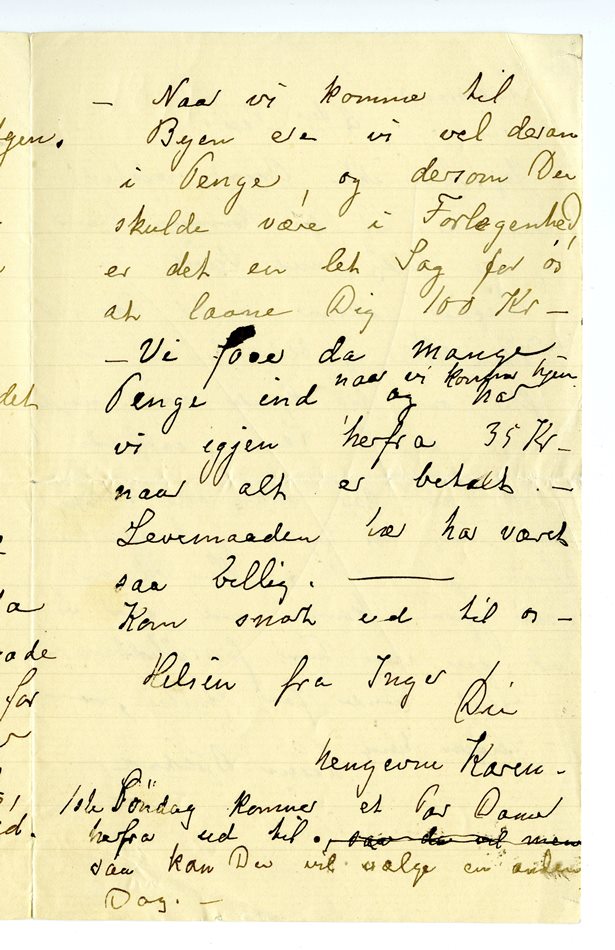 — Naar vi komme til
Byen ere vi vel deran
i Penge, og dersom Du
skulde være i Forlegenhed,
er det en let Sag for os
at laane Dig 100 Kr —
— Vi faae da mange
naar vi komme hjem
Penge ind og har
vi igjen herfra 35 Kr —
naar alt er betalt. —
Levemaaden her har været
saa billig. —
Kom snart ud til os —
Hilsen fra Inger
Din
hengivne Karen.
1ste Söndag kommer et Par Damer
herfra ud til os, saa du vil
saa kan Du vel vælge en anden
Dag. —
gen.
det
a
for